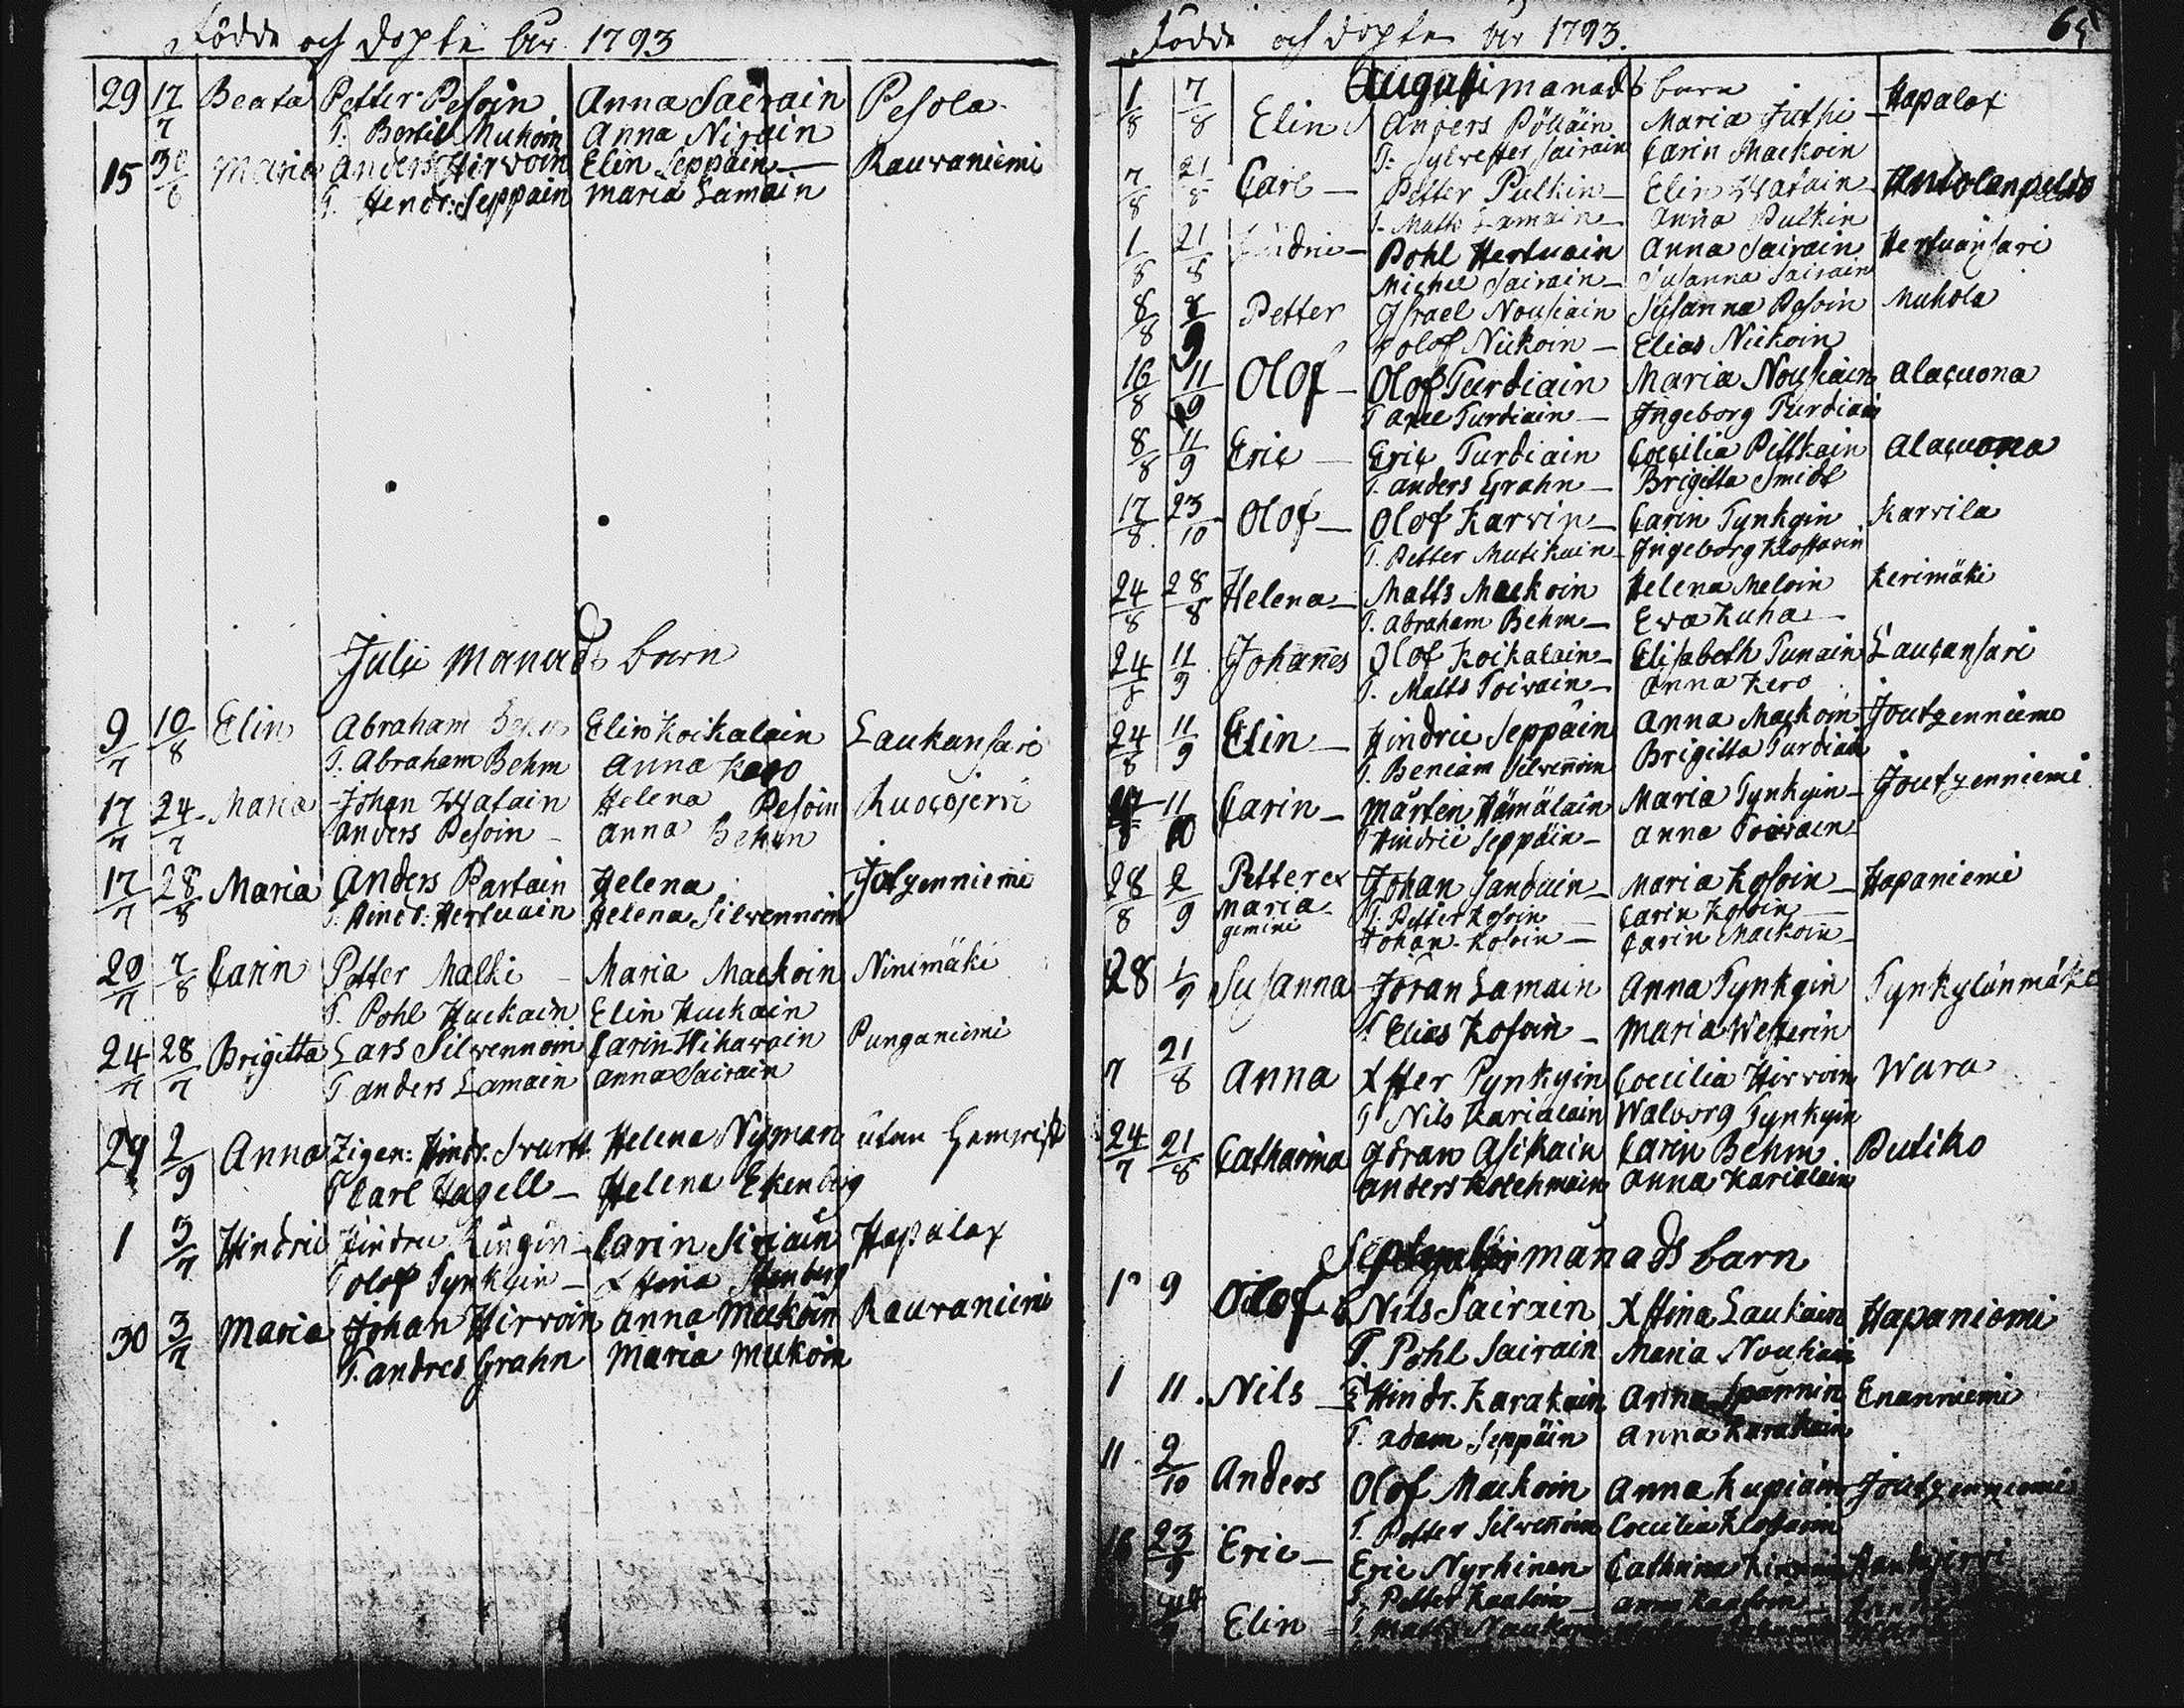 Födde och döpte åhr 1793
29 17/7 Beata Petter Pesoin Anna Sairain Pesola
T: Bertil Mukoin Anna Nirain
15 30/6 Maria Anders Hirvoin Elin Seppäin Rauvaniemi
T. Hendr: Seppäin Maria Lamain
Julii Månads barn
9/7 10/8 Elin Abraham Behm Elin Koikalain Laukansari
T. Abraham Behm Anna Kero
17/7 24/7 Maria Johan Watain Helena Pesoin Ruocojervi
Anders Pesoin Anna Behm
17/7 28/8 Maria Anders Partain Helena Jotzenniemi
T. Hindr: Hertuain Helena Silvennoin
20/7 7/8 Carin Petter Malki Maria Mackoin Ninimäki
T. Pohl Huckain Elin Huckain
24/7 28/7 Brigitta Lars Silvennoin Carin Wihavain Punganiemi
T anders Lamain anna Sairain
29 2/9 Anna Zigen: Hindr. Svartt Helena Nyman utan Hemvist
T Carl Hagell Helena Ekenberg
1 3/7 Hindric Hindric Kingin Carin Siriain Hapalax
T Olof Tynkyin Xstina Stenberg
30 3/7 Maria Johan Hirvoin Anna Muckoin Rauvaniemi
T. andres Grahn Maria Muckoin
Födde och döpte åhr 1793. 65
Augusti månads barn
1/8 7/8 Elin Anders Pölläin Maria Juthi Hapalax
T: Sylvester Sairain Carin Mackoin
7/8 21/8 Carl Petter Pulkin Elin Watain Antolanpelto
T. Matts Lamain Anna Pulkin
1/8 21/8 Hindric Pohl Hertuain Anna Sairain Hertuansari
Michel Sairain Susanna Sairain
8/8 8/9 Petter Israel Nousiain Susanna Pesoin Muhola
T Olof Nickoin Elias Nickoin
16/8 11/9 Olof Olof Turdiain Maria Nousiain Alacuona
T axel Turdiain Ingeborg Turdiain
8/8 11/9 Eric Eric Turdiain Coecilia Pittkain Alacuona
T. anders Grahn Brigitta Smidt
17/8 23/10 Olof Olof Karvin Carin Tynkyin Karvila
T. Petter Mutikain Ingeborg Klostarin
24/8 28/8 Helena Matts Mackoin Helena Meloin Kerimäki
T. Abraham Behm Ewa Kuha
24/8 11/9 Johannes Olof Koikalain Elisabeth Tunain Laucansari
T. Matts Toivain Anna Kero
24/8 11/9 Elin Hindric Seppäin Anna Mackoin Joutzenniemi
T. Beniam Silvennoin Brigitta Turdiain
11/10 Carin Mårten Hämäläin Maria Tynkyin Joutzenniemi
T Hindric Seppäin Anna Toivain
28/8 2/9 Petter et Johan Janduin Maria Kosoin Hapaniemi
Maria T. Petter Kosoin Carin Kosoin
gemini Johan Kosoin Carin Mackoin
28 1/9 Susanna Jöran Lamain Anna Tynkyin Tynkylänmäki
T Elias Kosoin Maria Westerin
7 21/8 Anna Xster Pynkyin Coecilia Hirvoin Wara
T Nils Karialain Walborg Tynkyin
24/7 21/8 Catharina Jöran Asikain Carin Behm Putiko
Anders Kolehmain Anna Karialain
September månads barn
1 9 Olof Nils Sairain Xstina Laukain Hapaniemi
T. Pohl Sairain Maria Noukain
1 11. Nils Hindr. Karakain Anna Spannin Enanniemi
T. Adam Seppäin Anna Karakain
11 2/10 Anders Olof Mackoin Anna Kupiain Joutzenniemi
T. Petter Silvennoin Coecilia Klostarin
16 23/9 Eric Eric Nyrhinen Cathrina
T. Petter Kaatoin Anna Kaatoin
Elin T. Matts